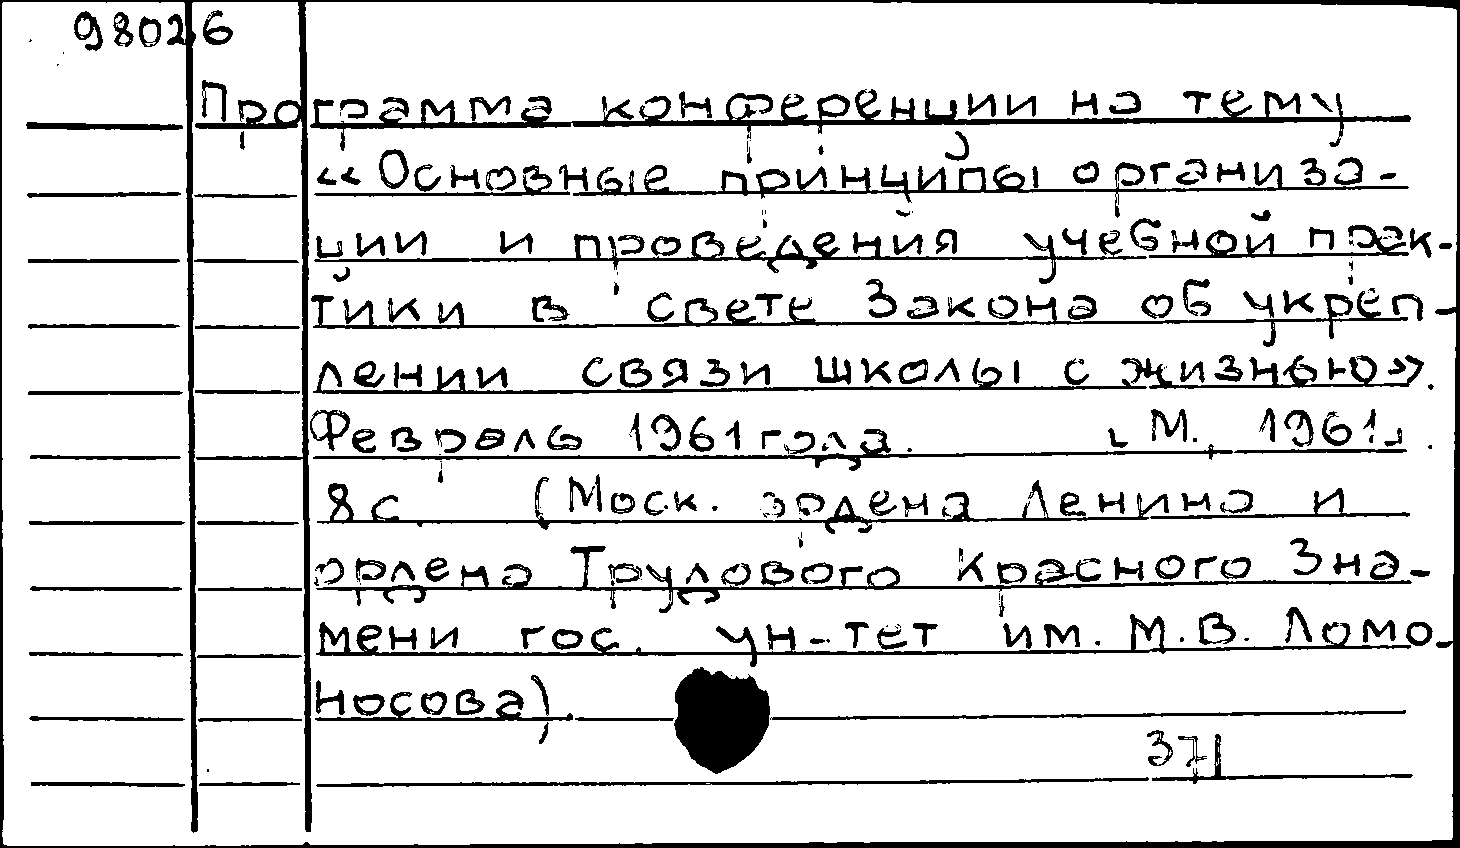 98026
Программа конференции на тему
«Основные принципы организа-
ции и проведения учебной прак-
тики в свете Закона об укреп-
лении связи школы с жизнью».
Февраль 1961 года. [М., 1961].
8 с. (Моск. ордена Ленина и
ордена Трудового Красного Зна-
мени гос. ун-тет им. М.В. Ломо-
носова).
371